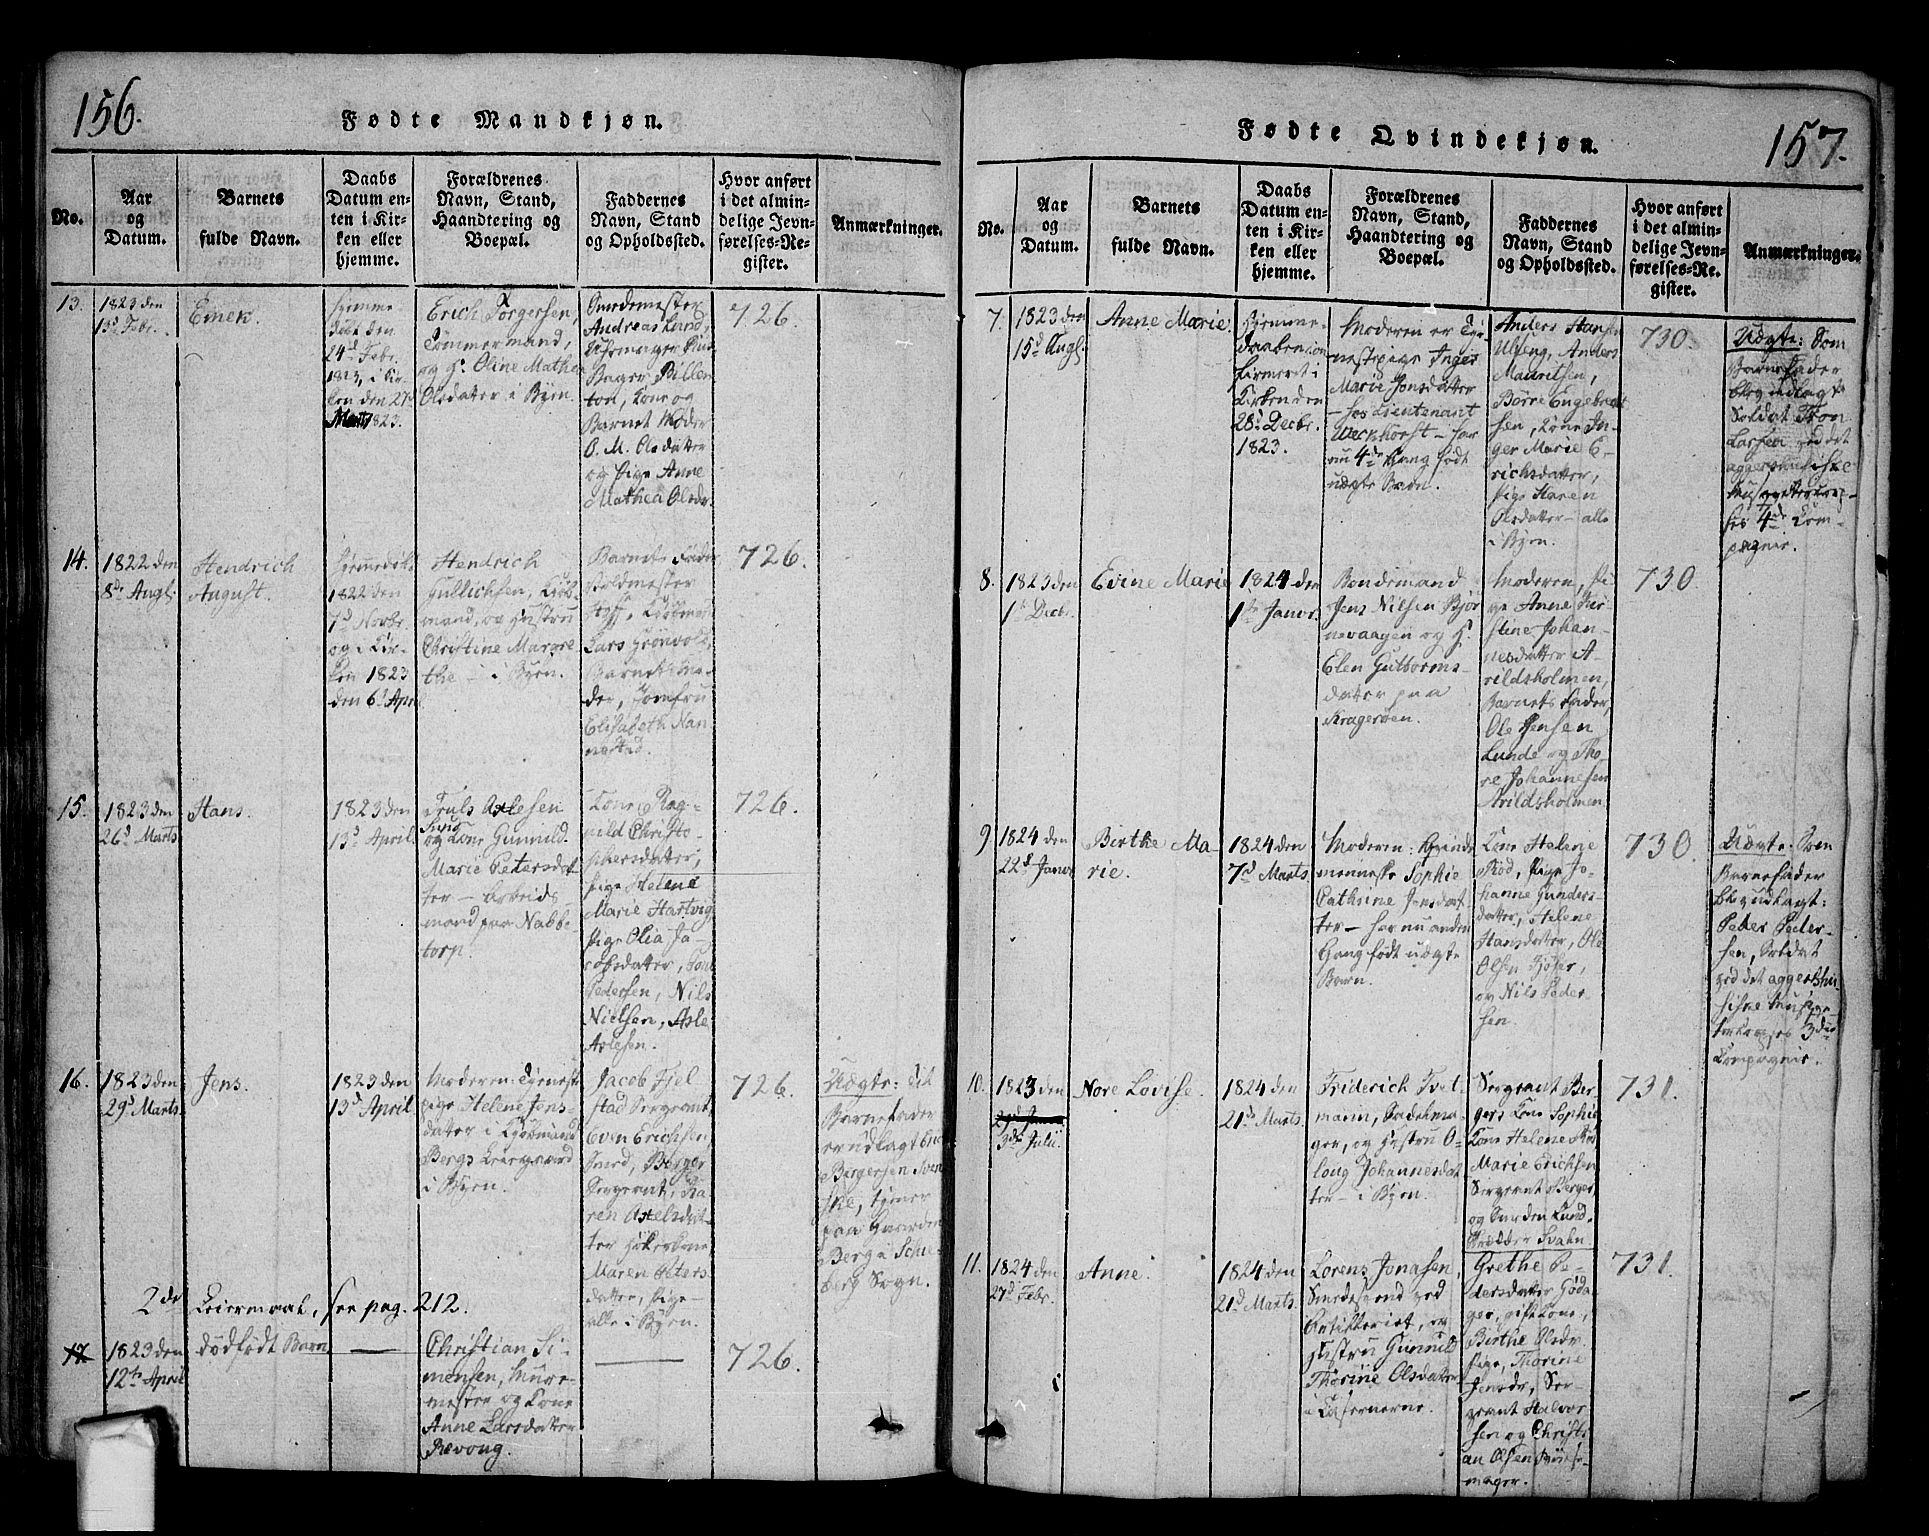 156.
Fødte Mandkjøn.
No.
Aar
og
Datum.
Barnets
fulde Navn.
Daabs
Datum en-
ten i Kir-
ken eller
hjemme.
Forældrenes
Navn, Stand,
Haandtering og
Boepæl.
Faddernes
Navn, Stand
og Opholdssted.
Hvor anført
i det almin-
delige Jevn-
førelses-Re-
gister.
Anmærkninger.
13.
1823 den
Febr.
Emek.
Hjemme-
døbt den
24d Febr.
1823, i Kir-
ken den 27d
Marts 1823.
Erich Torgersen,
Tømmermand,
og H. Oline Mathea
Olsdatter i Byen.
Smedemester
Andreas Lund,
Bager Billen-
ton, Kone og
Barnets Moder
O. M. Olsdatter
og Pige Anne
Mathea Olsdr.
726.
14.
1822 den
8de Augs.
Hendrich
August.
Hjemmedøbt
1822 den
7d Novbr.
og i Kir-
ken 1823
den 6d April
Hendrich
Gullichsen, Kjøb-
mand, og Hustru
Christine Margre-
the - i Byen.
Barnets Fader,
Toldmester
Kjøbmand
Lars Grønvold,
Barnets Mo-
der, Jomfru
Elisabeth Nan-
nestad.
726.
15.
1823 den
26d Marts
Hans.
1823 den
13d April
Truls Aslesen
og Kone Gunnild
Marie Petersdat-
ter - Arbeids-
mand paa Nabbe-
torp.
Kone Rag-
nild Christo-
phersdatter,
Pige Helene
Marie Hartvig
Pige Olia Ja-
cobsdatter,
Pedersen, Nils
Nielsen, Asle
Aslesen.
726.
16.
1823 den
29d Marts.
Jens.
1823 den
13d April
Moderen: Tjeneste-
pige Helene Jens-
datter i Kjøbmand
Bergs Leiegaard
i Byen.
Jacob Fjel-
stad Sergeant,
Even Erichsen
Smed, Berger
Sergeant, Ka-
ren Axelsdat-
ter
Maren Peters-
datter, Pige -
alle i Byen.
726.
Uægte: Til
Barnefader
er udlagt
Børgersen Sven-
ske, tjener
paa Gaarden
Berg i Schie-
berg Sogn.
2det Leiermaal, see pag. 212.
17.
1823 den
12te April
dødfødt Barn
Christian Si-
mensen, Muur-
mester og Kone
Anne Larsdatter
Revoug.
726.
157.
Fødte Qvindekjøn.
No.
Aar
og
Datum.
Barnets
fulde Navn.
Daabs
Datum en-
ten i Kir-
ken eller
hjemme.
Forældrenes
Navn, Stand,
Haandtering og
Boepæl.
Faddernes
Navn, Stand
og Opholdssted.
Hvor anført
i det almin-
delige Jevn-
førelses-Re-
gister.
Anmærkninger.
7.
1823 den
15d Augs.
Anne Marie.
Hjemme-
daaben con-
firmeret i
Kirken den
28d Decbr.
1823.
Moderen er Tje-
nestepige Inger
Marie Jonsdatter
- hos Lieutenant
Weckhorst - har
nu 4de Gang født
uægte Barn.
Anders Hansen
Ulfeng, Anders
Mauritsen,
Børre Engebret-
sen, Kone In-
ger Marie E-
richsdatter,
Pige Karen
Olsdatter - alle
i Byen.
730
Uægte: Som
Barnefader
blev udlagt
Soldat Thon
Larsen ved det
aggershusiske
Musqueteercorp-
ses 4de Com-
pagnie.
8.
1823 den
1ste Decbr.
Evine Marie
1824 den
1ste Janvr.
Bondemand
Jens Nilsen Bjør-
nevaagen og H.
Elen Guttorms-
datter paa
Kragerøen.
Moderen, Pi-
ge Anne Kir-
stine Johan-
nesdatter A-
rildsholmen,
Barnets Fader,
Ole Jensen
Lunde og Tho-
re Johannesen
Arildsholmen
730
9
1824 den
22d Janvr
Birthe Ma-
rie.
1824 den
7d Marts
Moderen: Qvinde-
menneske Sophie
Cathrine Jensdat-
ter - har nu anden
Gang født uægte
Barn.
Kone Helene
Rød, Pige Jo-
hanne Gunders-
datter, Helene
Hansdatter, Ole
Olsen
og Nils Peder-
sen.
730.
Uægte: Som
Barnefader
blev udlagt:
Peder Peder-
sen, Soldat
ved det aggershu-
siske Musque-
teercorpses 3die
Compagnie.
10.
1823 den
3die Julii.
Nore Lovise.
1824 den
21d Marts.
Friderich Tvet-
mann, Sadelma-
ger, og Hustru O-
loug Johannesdat-
ter - i Byen.
Sergeant Ber-
gers Kone Sophie,
Kone Helene
Marie Erichsen
Sergeant Berger,
og Lund.
Skrædder Svahn
731.
11.
1824 den
27d Febr.
Anne.
1824 den
21d Marts.
Lorens Jonassen,
Smedesvend ved
Artilleriet, og
Hustru Gunnild
Thorine Olsdatter,
i Casernerne.
Grethe Pe-
dersdatter
gift Kone,
Birthe Olsdr.
Pige, Thorine
Jensdr, Ser-
geant Halvor-
sen og Christi-
an Olsen Bøsse-
mager.
731.